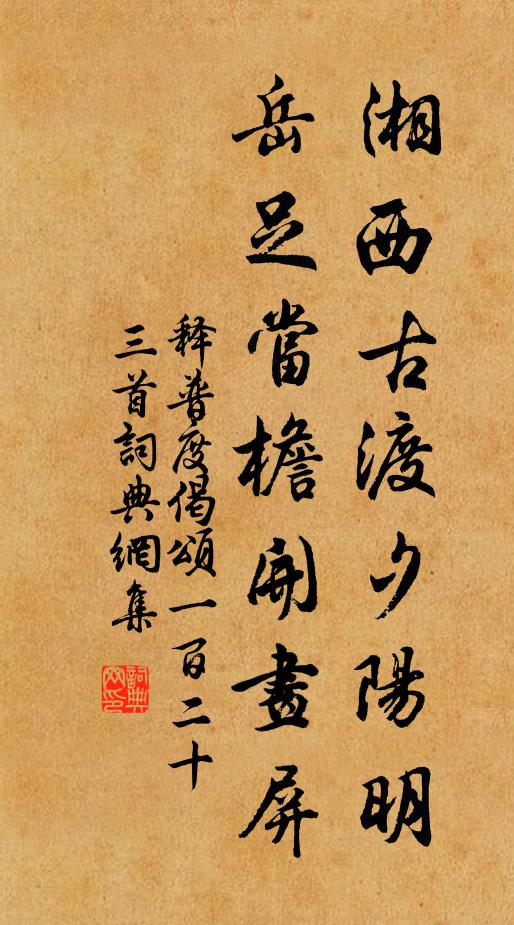 湘西古渡夕陽明
岳足當檐開畫屏
释普度偈頌一百二十
三首詞典網集
詞典
网印